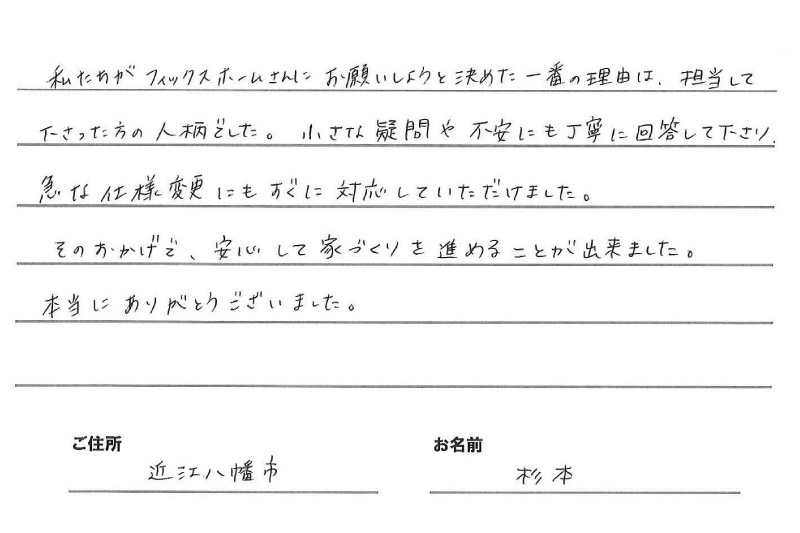 私たちがフィックスホームさんにお願いしようと決めた一番の理由は、担当して
下さった方の人柄でした。小さな疑問や不安にも丁寧に回答して下さり、
急な仕様変更にもすぐに対応していただけました。
そのおかげで、安心して家づくりを進めることが出来ました。
本当にありがとうございました。
ご住所
近江八幡市
お名前
杉本